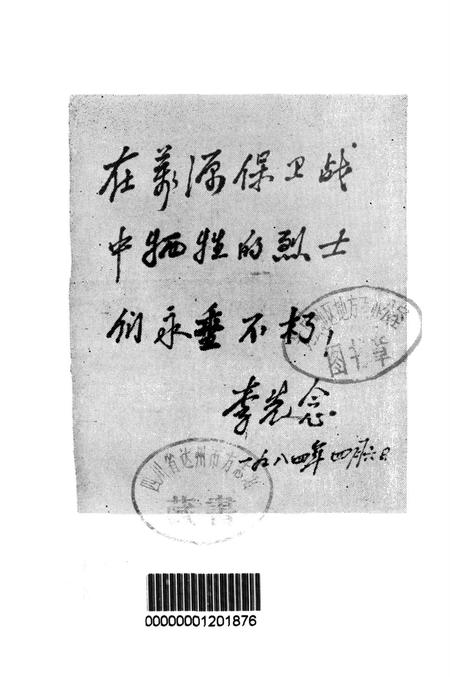 在萬源保卫战
中牺牲的烈士
们永垂不朽！
李先念
一九八四年四月六日
地方志办公室
图书章
四川省达州市方志办
藏書
00000001201876